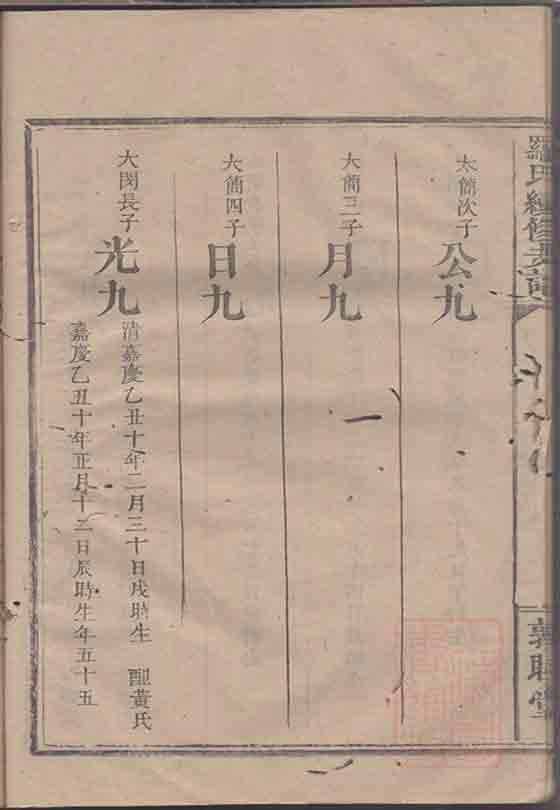 羅氏續修支譜
敦睦堂
大簡次子
公九
大簡三子
月九
大簡四子
日九
大閔長子
光九
清嘉慶乙丑十年二月三十日戌時生 配黃氏
嘉慶乙丑十年正月十二日辰時生年五十五